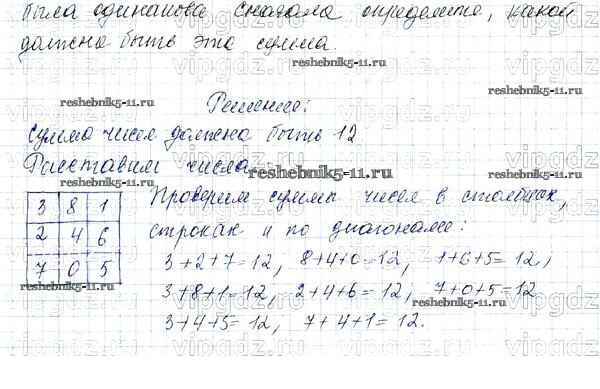 была одинакова сначала определите, какой
должна быть эта сумма.
reshebnik5-11.ru
reshebnik5-11.ru
Решение:
Сумма чисел должна быть 12
Расставим числа
reshebnik5-11.ru
reshebnik5-11.ru
3 8 1
2 4 6
7 0 5
Проверим сумму чисел в столбцах,
строках и по диагонали:
3+2+7=12, 8+4+0=12, 1+6+5=12,
3+8+1=12, 2+4+6=12, 7+0+5=12
reshebnik5-11.ru
3+4+5=12, 7+4+1=12.
reshebnik5-11.ru
vipgdz.ru